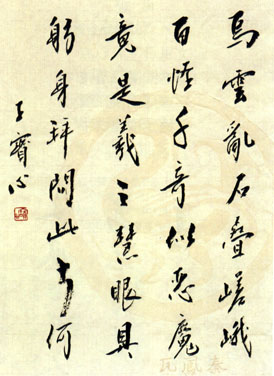 烏雲亂石疊嵯峨
百怪千奇似惡魔
竟是羲之慧眼具
躬身拜問此何
王心
秦鳳瓦